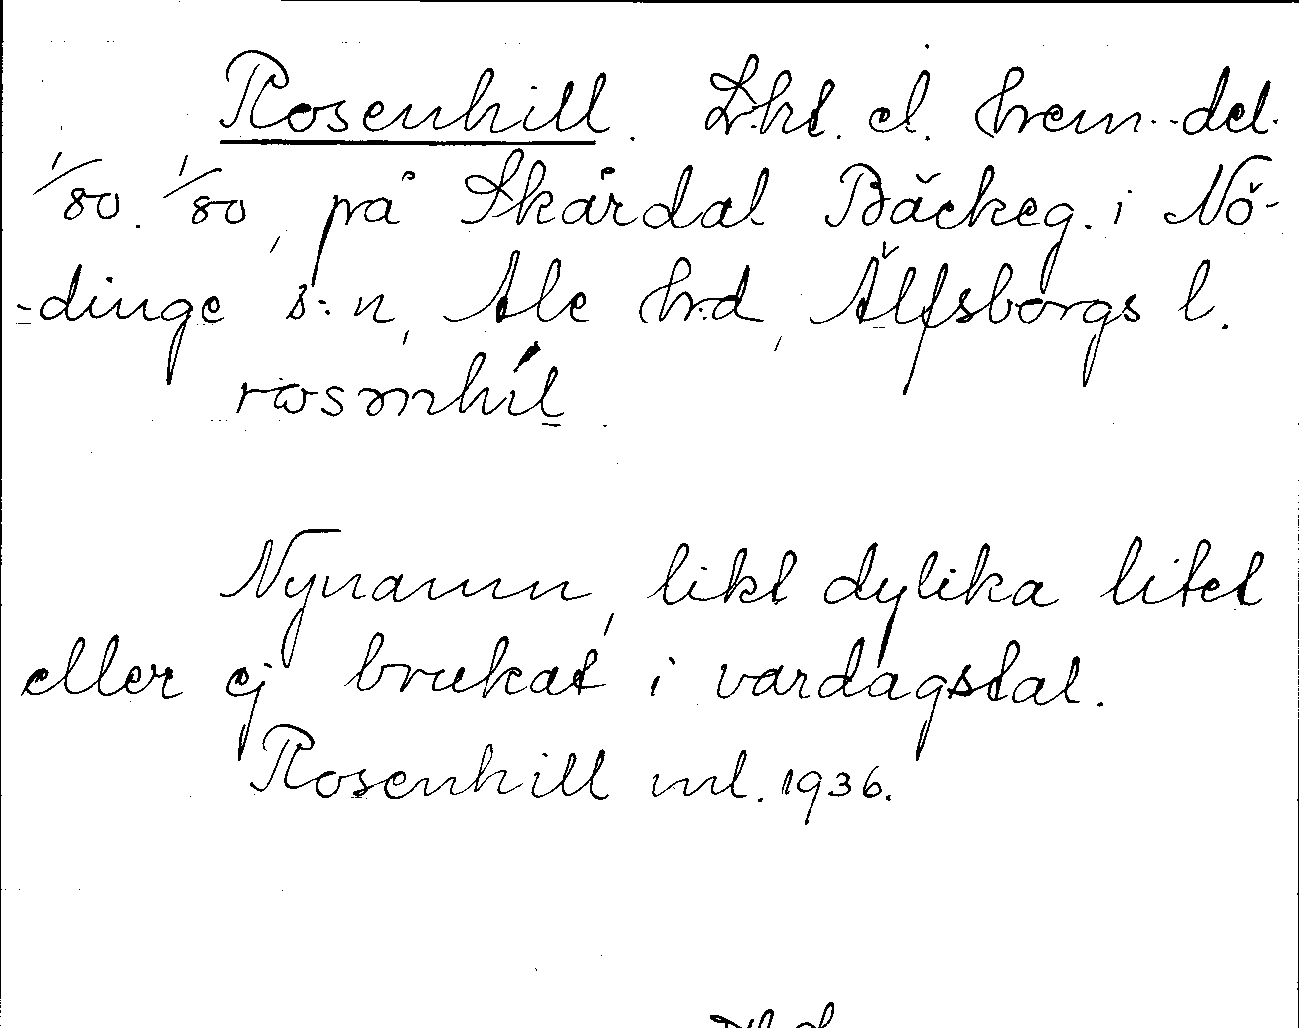 Rosenhill. Lht. el. hem. del.
1/80. 1/80, på Skårdal Bäckeg. i Nö-
-dinge s:n, Ale hrd, Älfsborgs l.
Nynamn, likt dylika litet
eller ej brukat i vardagstal.
Rosenhill ml. 1936.